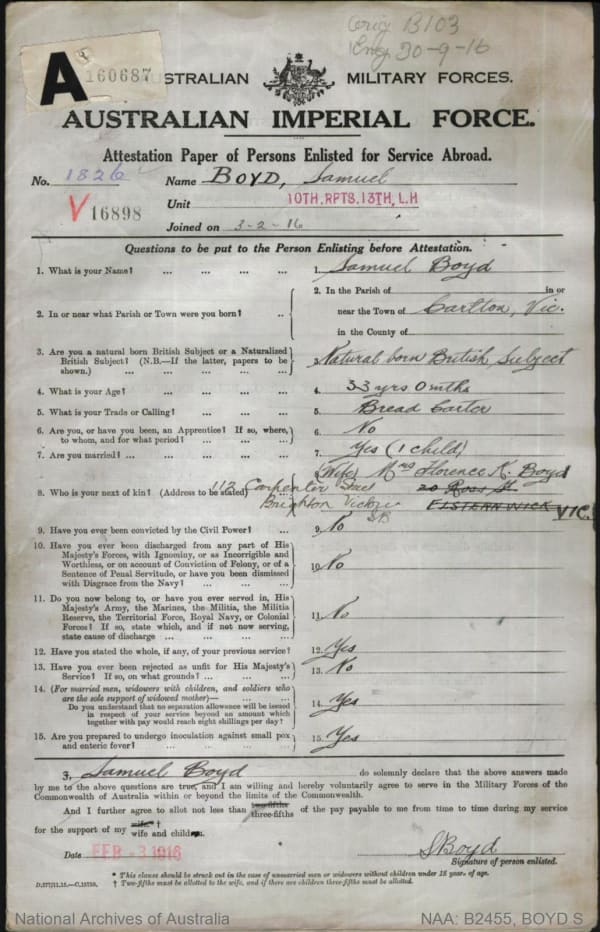 Orig B103
Emb 30-9-16
A 160687
AUSTRALIAN MILITARY FORCES.
AUSTRALIAN IMPERIAL FORCE.
Attestation Paper of Persons Enlisted for Service Abroad.
No. 1826 Name BOYD, Samuel
V 16898 Unit 10TH. RPTS. 13TH, L.H
Joined on 3-2-16
Questions to be put to the Person Enlisting before Attestation.
1. What is your Name? ... ... ... ... 1. Samuel Boyd
2. In or near what Parish or Town were you born? ... 2. In the Parish of in or
near the Town of Carlton, Vic.
in the County of
3. Are you a natural born British Subject or a Naturalized
British Subject? (N.B.—If the latter, papers to be
shown.) ... ... ... ... ... 3. Natural born British Subject
4. What is your Age? ... ... ... ... 4. 33 yrs 0 mths
5. What is your Trade or Calling? ... ... ... 5. Bread Carter
6. Are you, or have you been, an Apprentice? If so, where,
to whom, and for what period? ... ... ... 6. No
7. Are you married? ... ... ... ... 7. Yes (1 child)
(Wife) Mrs Florence K. Boyd
8. Who is your next of kin? (Address to be stated) 112 Carpenter Street 20 Ross St
Brighton Victoria ELSTERNWICK VIC.
9. Have you ever been convicted by the Civil Power? ... 9. No
10. Have you ever been discharged from any part of His
Majesty's Forces, with Ignominy, or as Incorrigible and
Worthless, or on account of Conviction of Felony, or of a
Sentence of Penal Servitude, or have you been dismissed
with Disgrace from the Navy? ... ... ... 10. No
11. Do you now belong to, or have you ever served in, His
Majesty's Army, the Marines, the Militia, the Militia
Reserve, the Territorial Force, Royal Navy, or Colonial
Forces? If so, state which, and if not now serving,
state cause of discharge ... ... ... ... 11. No
12. Have you stated the whole, if any, of your previous service? 12. Yes
13. Have you ever been rejected as unfit for His Majesty's
Service? If so, on what grounds? ... ... ... 13. No
14. (For married men, widowers with children, and soldiers who
are the sole support of widowed mother)—
Do you understand that no separation allowance will be issued
in respect of your service beyond an amount which
together with pay would reach eight shillings per day? 14. Yes
15. Are you prepared to undergo inoculation against small pox
and enteric fever? ... ... ... ... 15. Yes
I, Samuel Boyd do solemnly declare that the above answers made
by me to the above questions are true, and I am willing and hereby voluntarily agree to serve in the Military Forces of the
Commonwealth of Australia within or beyond the limits of the Commonwealth.
And I further agree to allot not less than two-fifths
three-fifths of the pay payable to me from time to time during my service
for the support of my wife †
wife and children.
Date FEB -3 1916 S Boyd
Signature of person enlisted.
* This clause should be struck out in the case of unmarried men or widowers without children under 18 years of age.
D.577/11.15.—C.15750. † Two-fifths must be allotted to the wife, and if there are children three-fifths must be allotted.
National Archives of Australia NAA: B2455, BOYD S